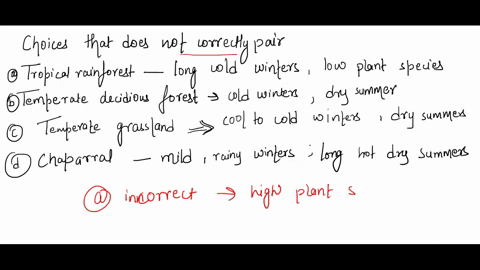 Choices that does not correctly pair
(a) Tropical rainforest — long cold winters, low plant species
(b) Temperate decidious forest → cold winters, dry summer
(c) Temperate grassland ⇒ cool to cold winters, dry summers
(d) Chaparral — mild, rainy winters; long hot dry summers
(a) incorrect → high plant s